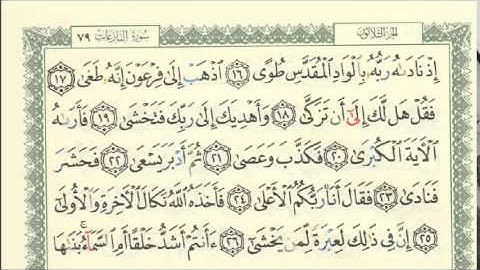 الجزء الثلاثون سورة النازعات ٧٩
إِذْ نَادَىٰهُ رَبُّهُۥ بِٱلْوَادِ ٱلْمُقَدَّسِ طُوًى ١٦ ٱذْهَبْ إِلَىٰ فِرْعَوْنَ إِنَّهُۥ طَغَىٰ ١٧
فَقُلْ هَل لَّكَ إِلَىٰٓ أَن تَزَكَّىٰ ١٨ وَأَهْدِيَكَ إِلَىٰ رَبِّكَ فَتَخْشَىٰ ١٩ فَأَرَىٰهُ
ٱلْـَٔايَةَ ٱلْكُبْرَىٰ ٢٠ فَكَذَّبَ وَعَصَىٰ ٢١ ثُمَّ أَدْبَرَ يَسْعَىٰ ٢٢ فَحَشَرَ
فَنَادَىٰ ٢٣ فَقَالَ أَنَا۠ رَبُّكُمُ ٱلْأَعْلَىٰ ٢٤ فَأَخَذَهُ ٱللَّهُ نَكَالَ ٱلْـَٔاخِرَةِ وَٱلْأُولَىٰٓ
٢٥ إِنَّ فِى ذَٰلِكَ لَعِبْرَةً لِّمَن يَخْشَىٰٓ ٢٦ ءَأَنتُمْ أَشَدُّ خَلْقًا أَمِ ٱلسَّمَآءُ ۚ بَنَىٰهَا